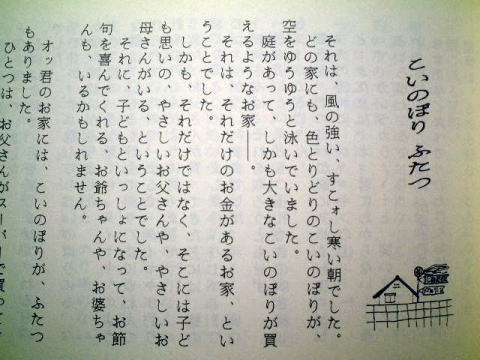 こいのぼり ふたつ
それは、風の強い、すこォし寒い朝でした。
どの家にも、色とりどりのこいのぼりが、
空をゆうゆうと泳いでいました。
庭があって、しかも大きなこいのぼりが買
えるようなお家――。
それは、それだけのお金があるお家、とい
うことでした。
しかも、それだけではなく、そこには子ど
も思いの、やさしいお父さんや、やさしいお
母さんがいる、ということでした。
それに、子どもといっしょになって、お節
句を喜んでくれる、お爺ちゃんや、お婆ちゃ
んも、いるかもしれません。
オッ君のお家には、こいのぼりが、ふたつ
もありました。
ひとつは、お父さんがスーパーで買って